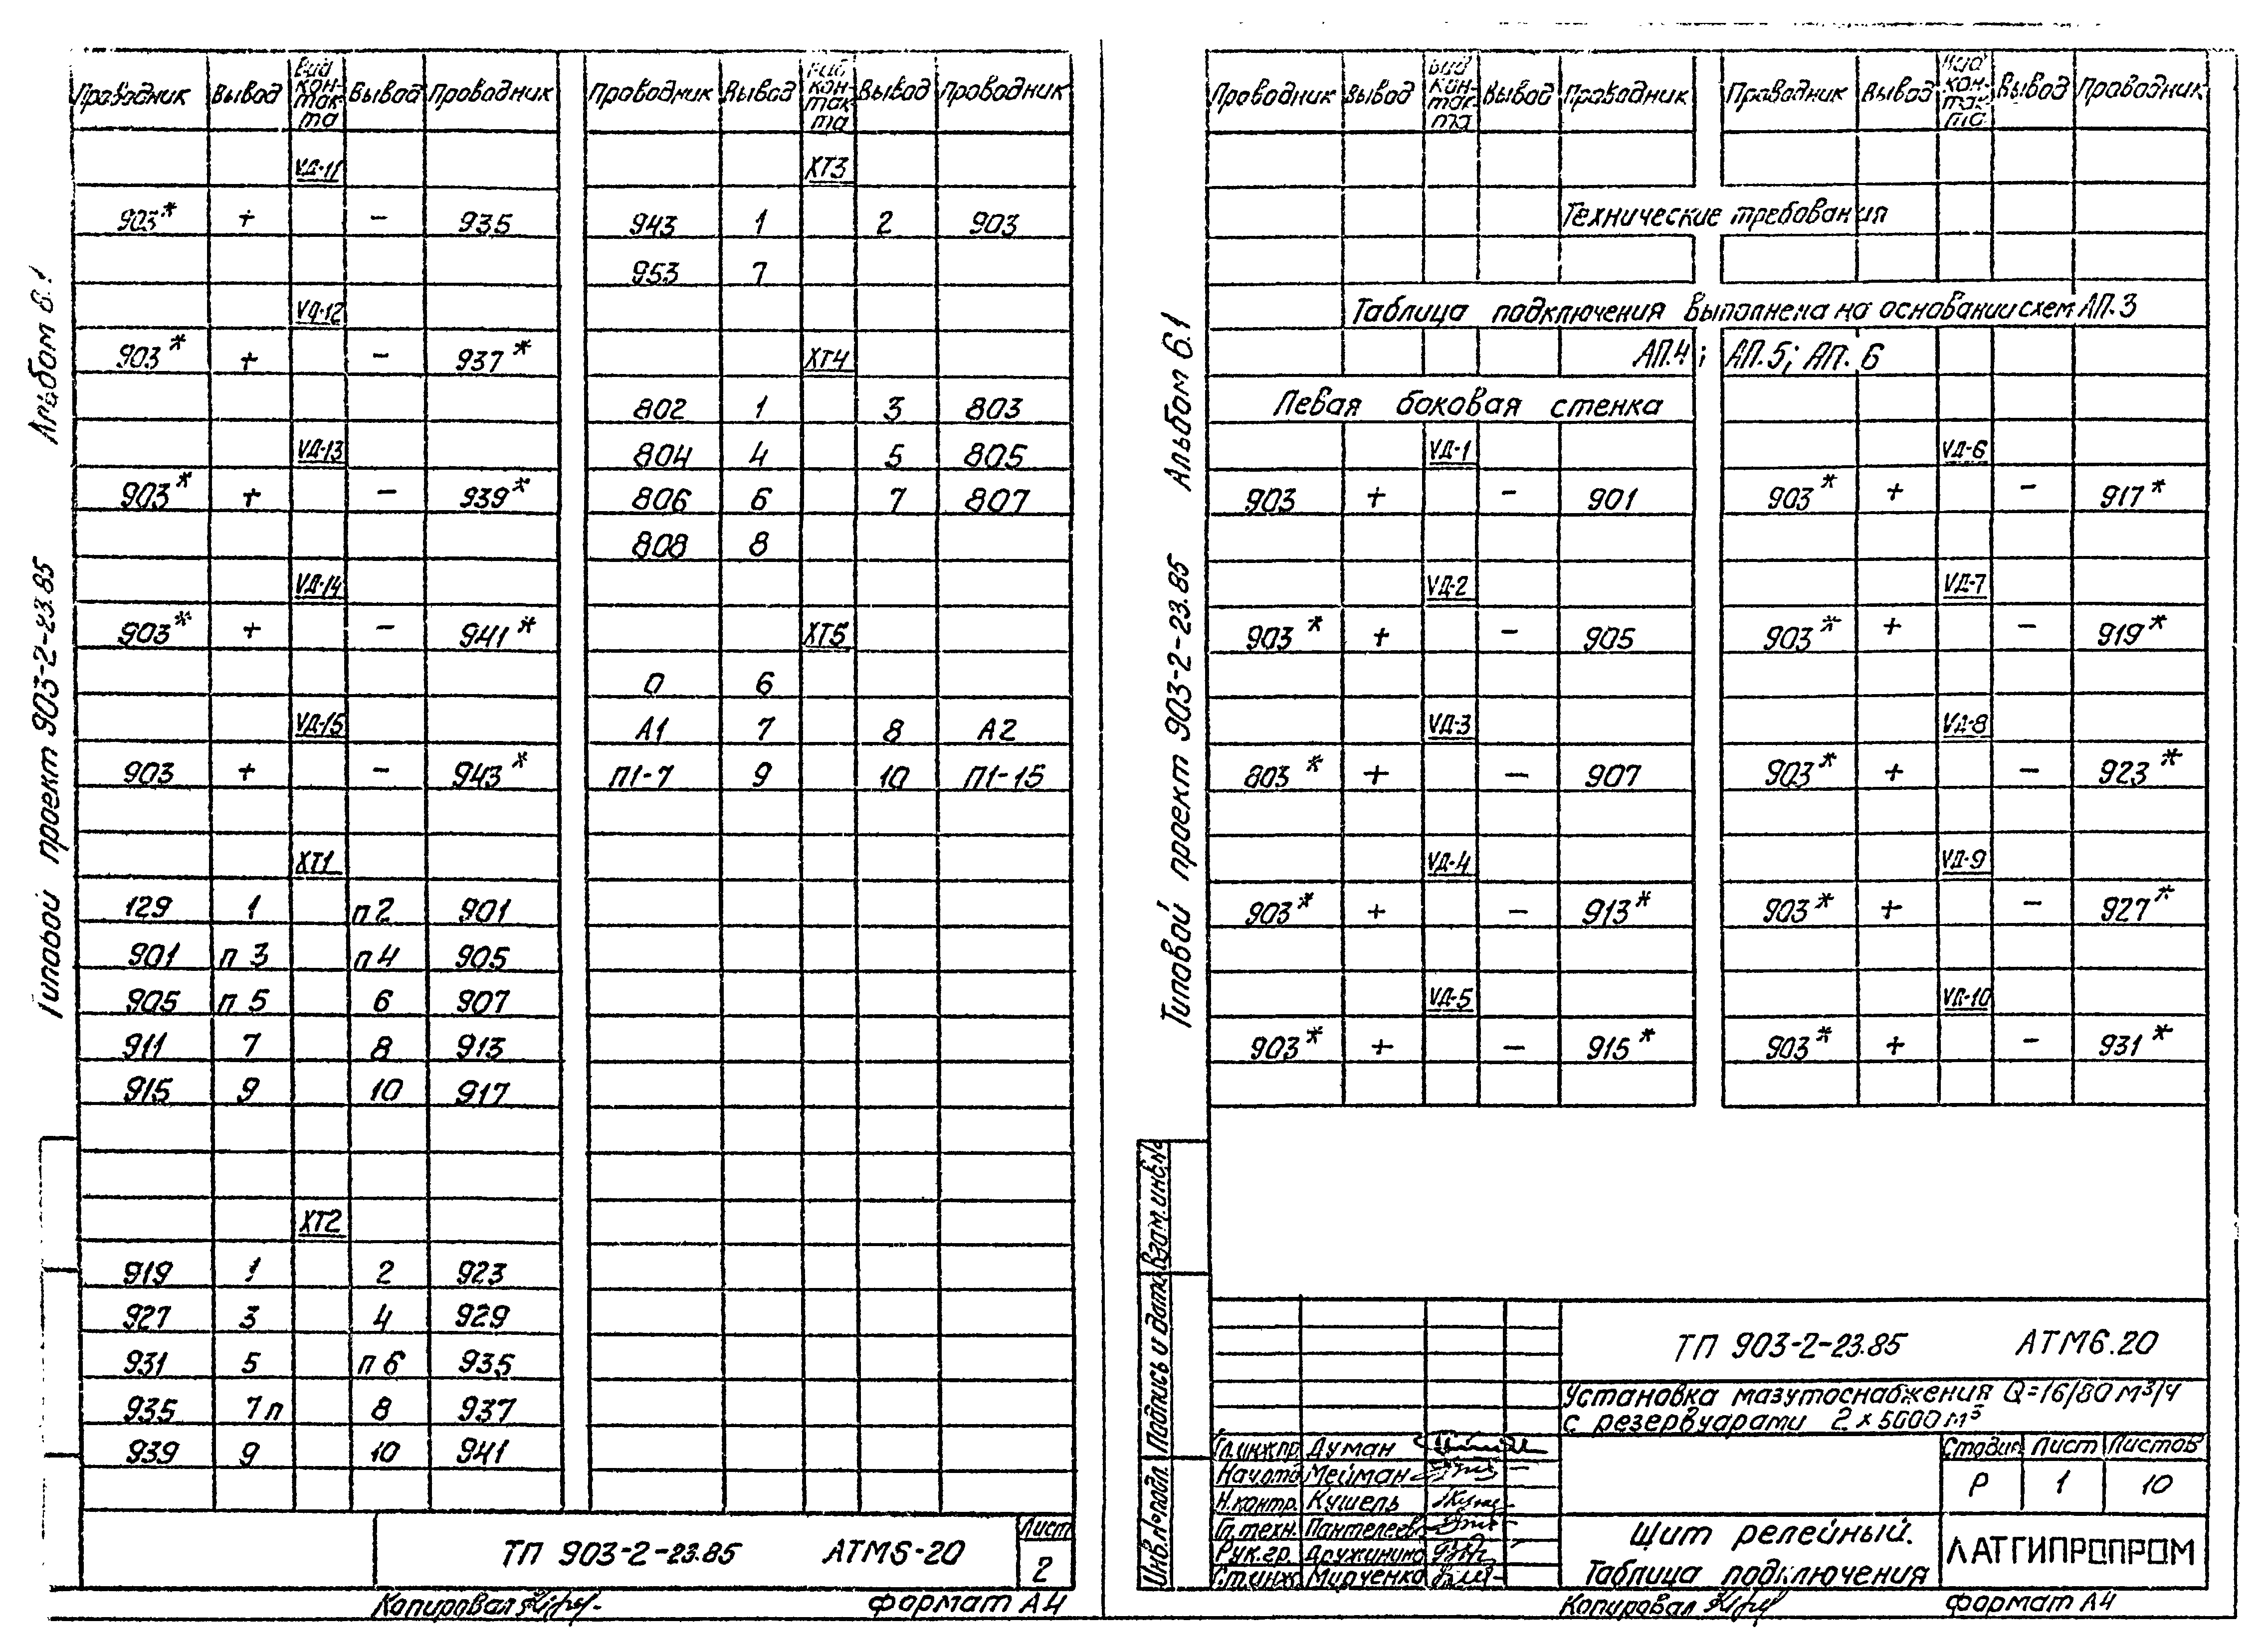 Альбом 6.1
Типовой проект 903-2-23.85
Проводник Вывод Вид кон-такта Вывод Проводник
VД-11
903* + − 935
VД-12
903* + − 937*
VД-13
903* + − 939*
VД-14
903* + − 941*
VД-15
903 + − 943*
ХТ1
129 1 п2 901
901 п3 п4 905
905 п5 6 907
911 7 8 913
915 9 10 917
ХТ2
919 1 2 923
927 3 4 929
931 5 п6 935
935 7п 8 937
939 9 10 941
Проводник Вывод Вид кон-такта Вывод Проводник
ХТ3
943 1 2 903
953 7
ХТ4
802 1 3 803
804 4 5 805
806 6 7 807
808 8
ХТ5
0 6
А1 7 8 А2
П1-7 9 10 П1-15
ТП 903-2-23.85 АТМ6-20
Лист
2
Копировал
формат А4
Альбом 6.1
Типовой проект 903-2-23.85
Проводник Вывод Вид кон-так-та Вывод Проводник
Проводник Вывод Вид кон-так-та Вывод Проводник
Технические требования
Таблица подключения выполнена на основании схем АП.3
АП.4; АП.5; АП.6
Левая боковая стенка
VД-1
903 + − 901
VД-2
903* + − 905
VД-3
803* + − 907
VД-4
903* + − 913*
VД-5
903* + − 915*
VД-6
903* + − 917*
VД-7
903* + − 919*
VД-8
903* + − 923*
VД-9
903* + − 927*
VД-10
903* + − 931*
Взам.инв.№
Подпись и дата
Инв.№подл.
ТП 903-2-23.85 АТМ6.20
Установка мазутоснабжения Q=16/80 м³/ч
с резервуарами 2×5000 м³
Гл.инж.пр. Думан
Нач.отд Мейман
Н.контр. Кушель
Гл.техн. Пантелеев
Рук.гр. Дружинина
Ст.инж. Мирченко
Стадия Лист Листов
Р 1 10
Щит релейный.
Таблица подключения
ЛАТГИПРОПРОМ
Копировал
формат А4